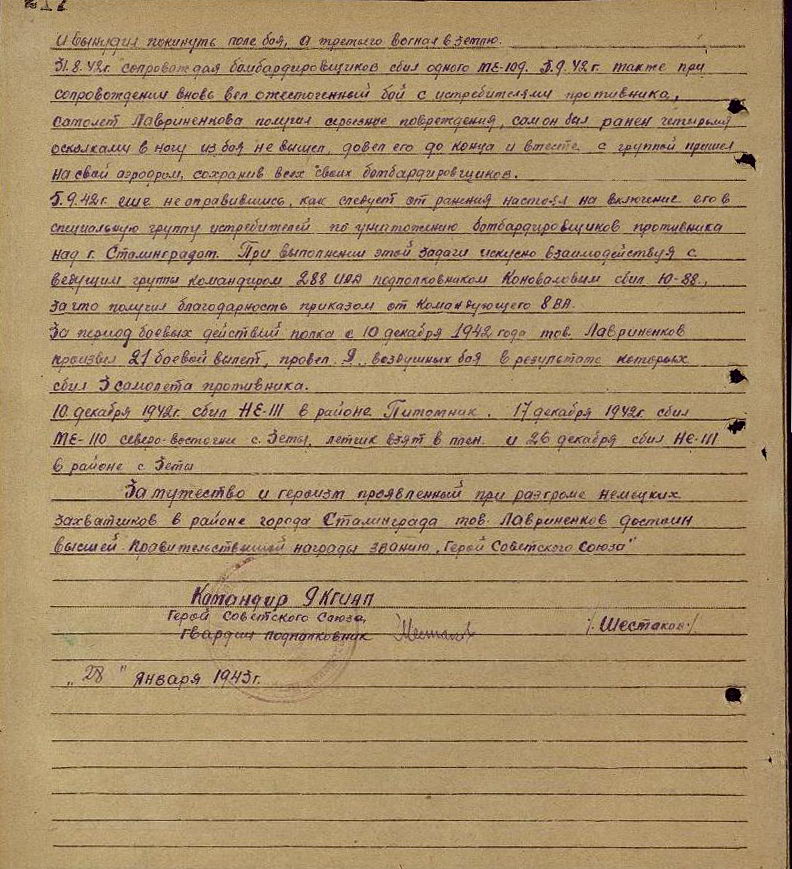 и вынудил покинуть поле боя, а третьего вогнал в землю.
31.8.42г. сопровождая бомбардировщиков сбил одного МЕ-109. 3.9.42г. также при
сопровождении вновь вел ожесточенный бой с истребителями противника,
самолет Лавриненкова получил серьезные повреждения, сам он был ранен четырьмя
осколками в ногу из боя не вышел, довел его до конца и вместе с группой пришел
на свой аэродром, сохранив всех своих бомбардировщиков.
5.9.42г. еще не оправившись, как следует от ранения настоял на включение его в
специальную группу истребителей по уничтожению бомбардировщиков противника
над г. Сталинградом. При выполнении этой задачи искусно взаимодействуя с
ведущим группы командиром 288 ИАД подполковником Коноваловым сбил Ю-88,
за что получил благодарность приказом от Командующего 8 ВА.
За период боевых действий полка с 10 декабря 1942 года тов. Лавриненков
произвел 21 боевой вылет, провел 9 воздушных боя в результате которых
сбил 3 самолета противника.
10 декабря 1942г. сбил НЕ-111 в районе Питомник. 17 декабря 1942г. сбил
МЕ-110 северо-восточнее с. Зеты, летчик взят в плен. и 26 декабря сбил НЕ-111
в районе с. Зеты
За мужество и героизм проявленный при разгроме немецких
захватчиков в районе города Сталинграда тов. Лавриненков достоин
высшей правительственной награды званию „Герой Советского Союза"
Командир 9 КГИАП
Герой Советского Союза,
гвардии подполковник Шестаков /Шестаков/
„28" Января 1943г.